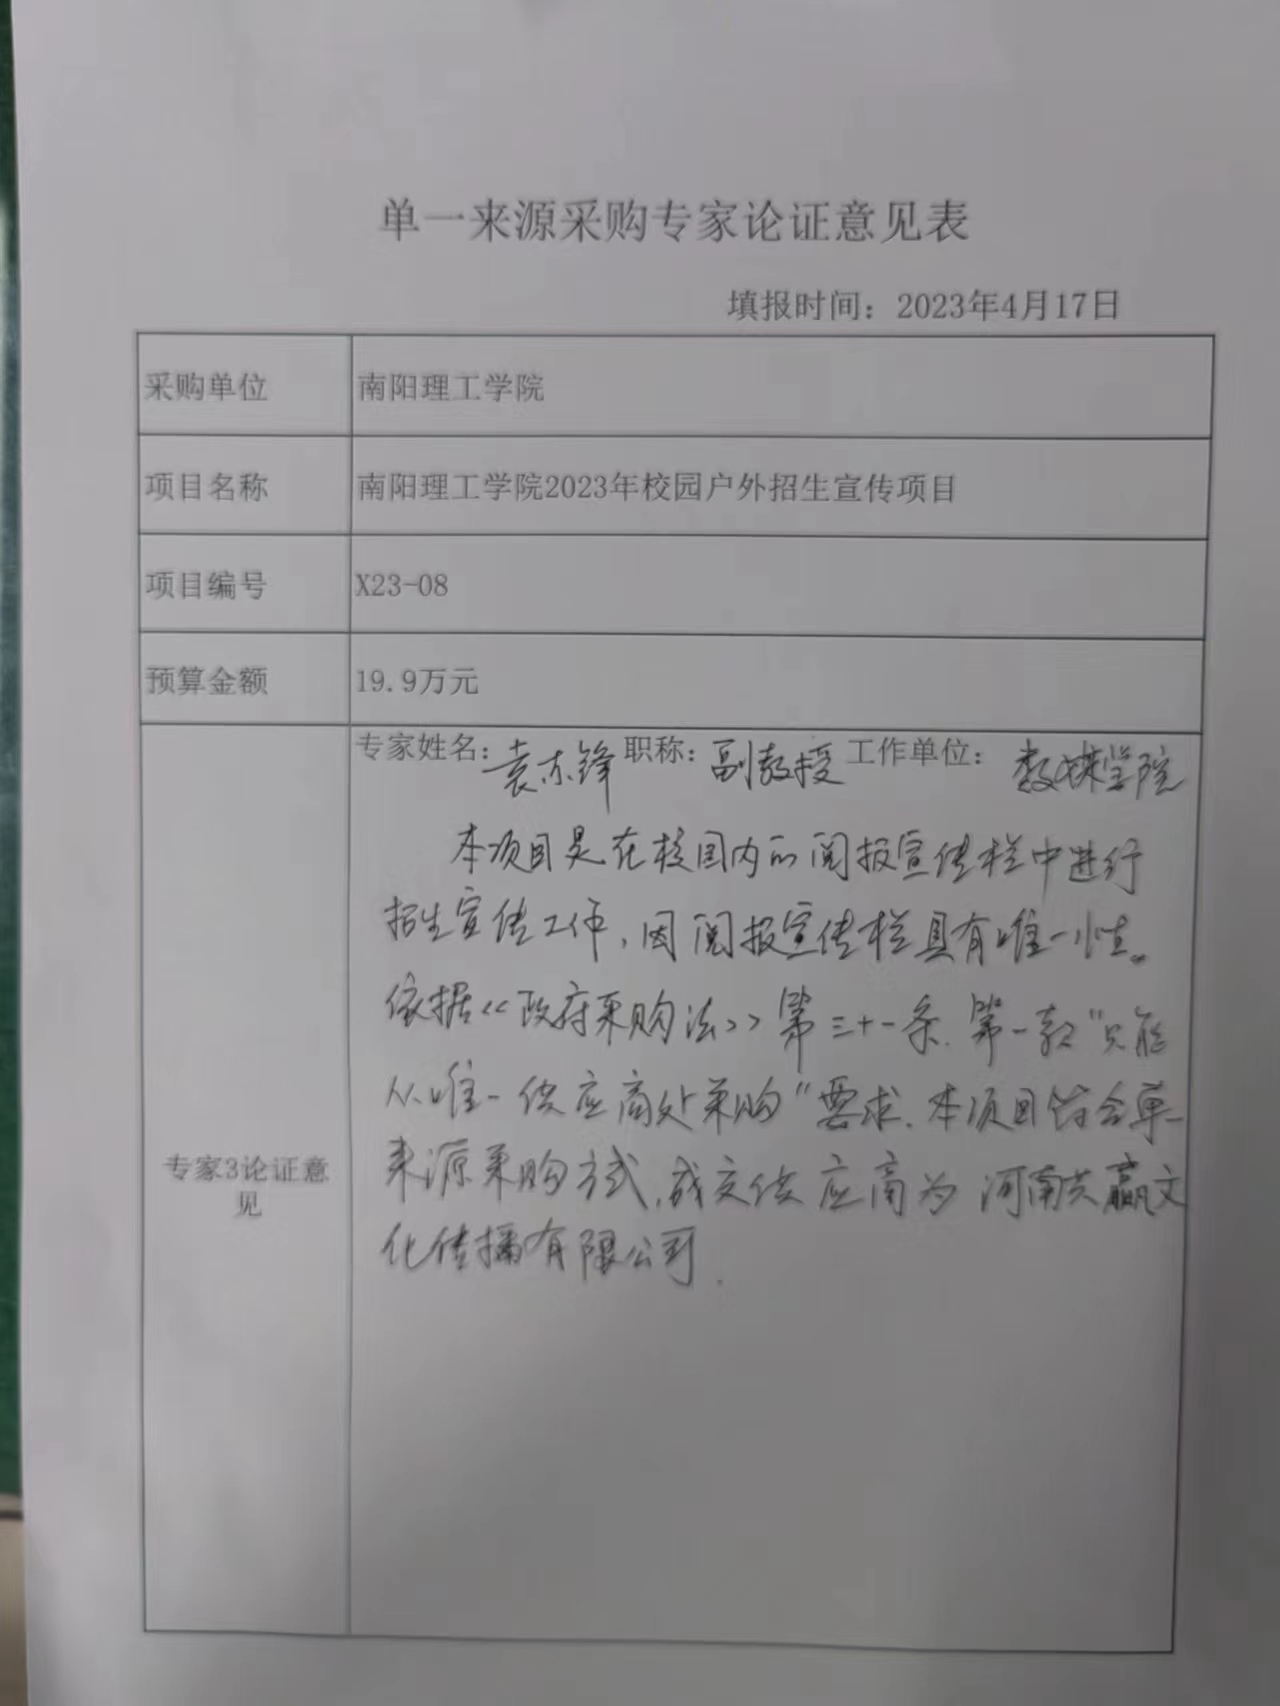 单一来源采购专家论证意见表
填报时间：2023年4月17日
采购单位
南阳理工学院
项目名称
南阳理工学院2023年校园户外招生宣传项目
项目编号
X23-08
预算金额
19.9万元
专家姓名：袁东锋 职称：副教授 工作单位： 学院
本项目是在校园内的阅报宣传栏中进行
招生宣传工作，因阅报宣传栏具有唯一性。
依据《政府采购法》第三十一条.第一款"只能
从唯一供应商处采购"要求.本项目符合单一
来源采购方式.成交供应商为河南共赢文
化传播有限公司.
专家3论证意
见